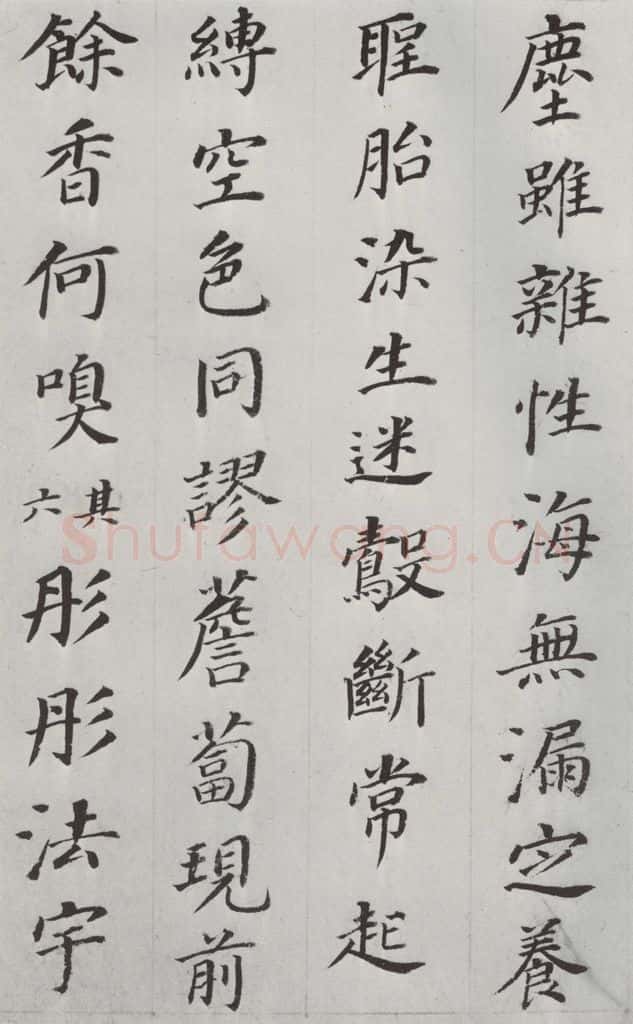 塵雖雜性海無漏定養
聖胎染生迷鷇斷常起
縛空色同謬薝蔔現前
餘香何嗅其六彤彤法宇
Shufawang.CN